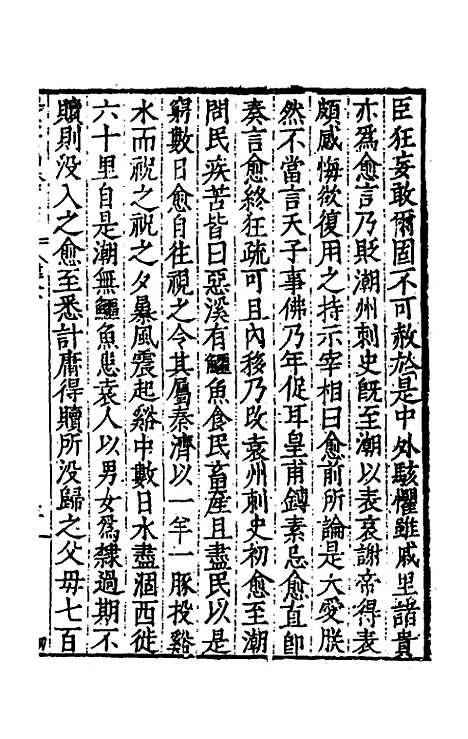 臣狂妄敢爾固不可赦於是中外駭懼雖戚里諸貴
亦爲愈言乃貶潮州刺史旣至潮以表哀謝帝得表
頗感悔欲復用之持示宰相曰愈前所論是大愛朕
然不當言天子事佛乃年促耳皇甫鎛素忌愈直即
奏言愈終狂疏可且內移乃改袁州刺史初愈至潮
問民疾苦皆曰惡溪有鱷魚食民畜產且盡民以是
窮數日愈自往視之令其屬秦濟以一羊一豚投谿
水而祝之祝之夕暴風震起谿中數日水盡涸西徙
六十里自是潮無鱷魚患袁人以男女爲隷過期不
贖則没入之愈至悉計庸得贖所没歸之父母七百